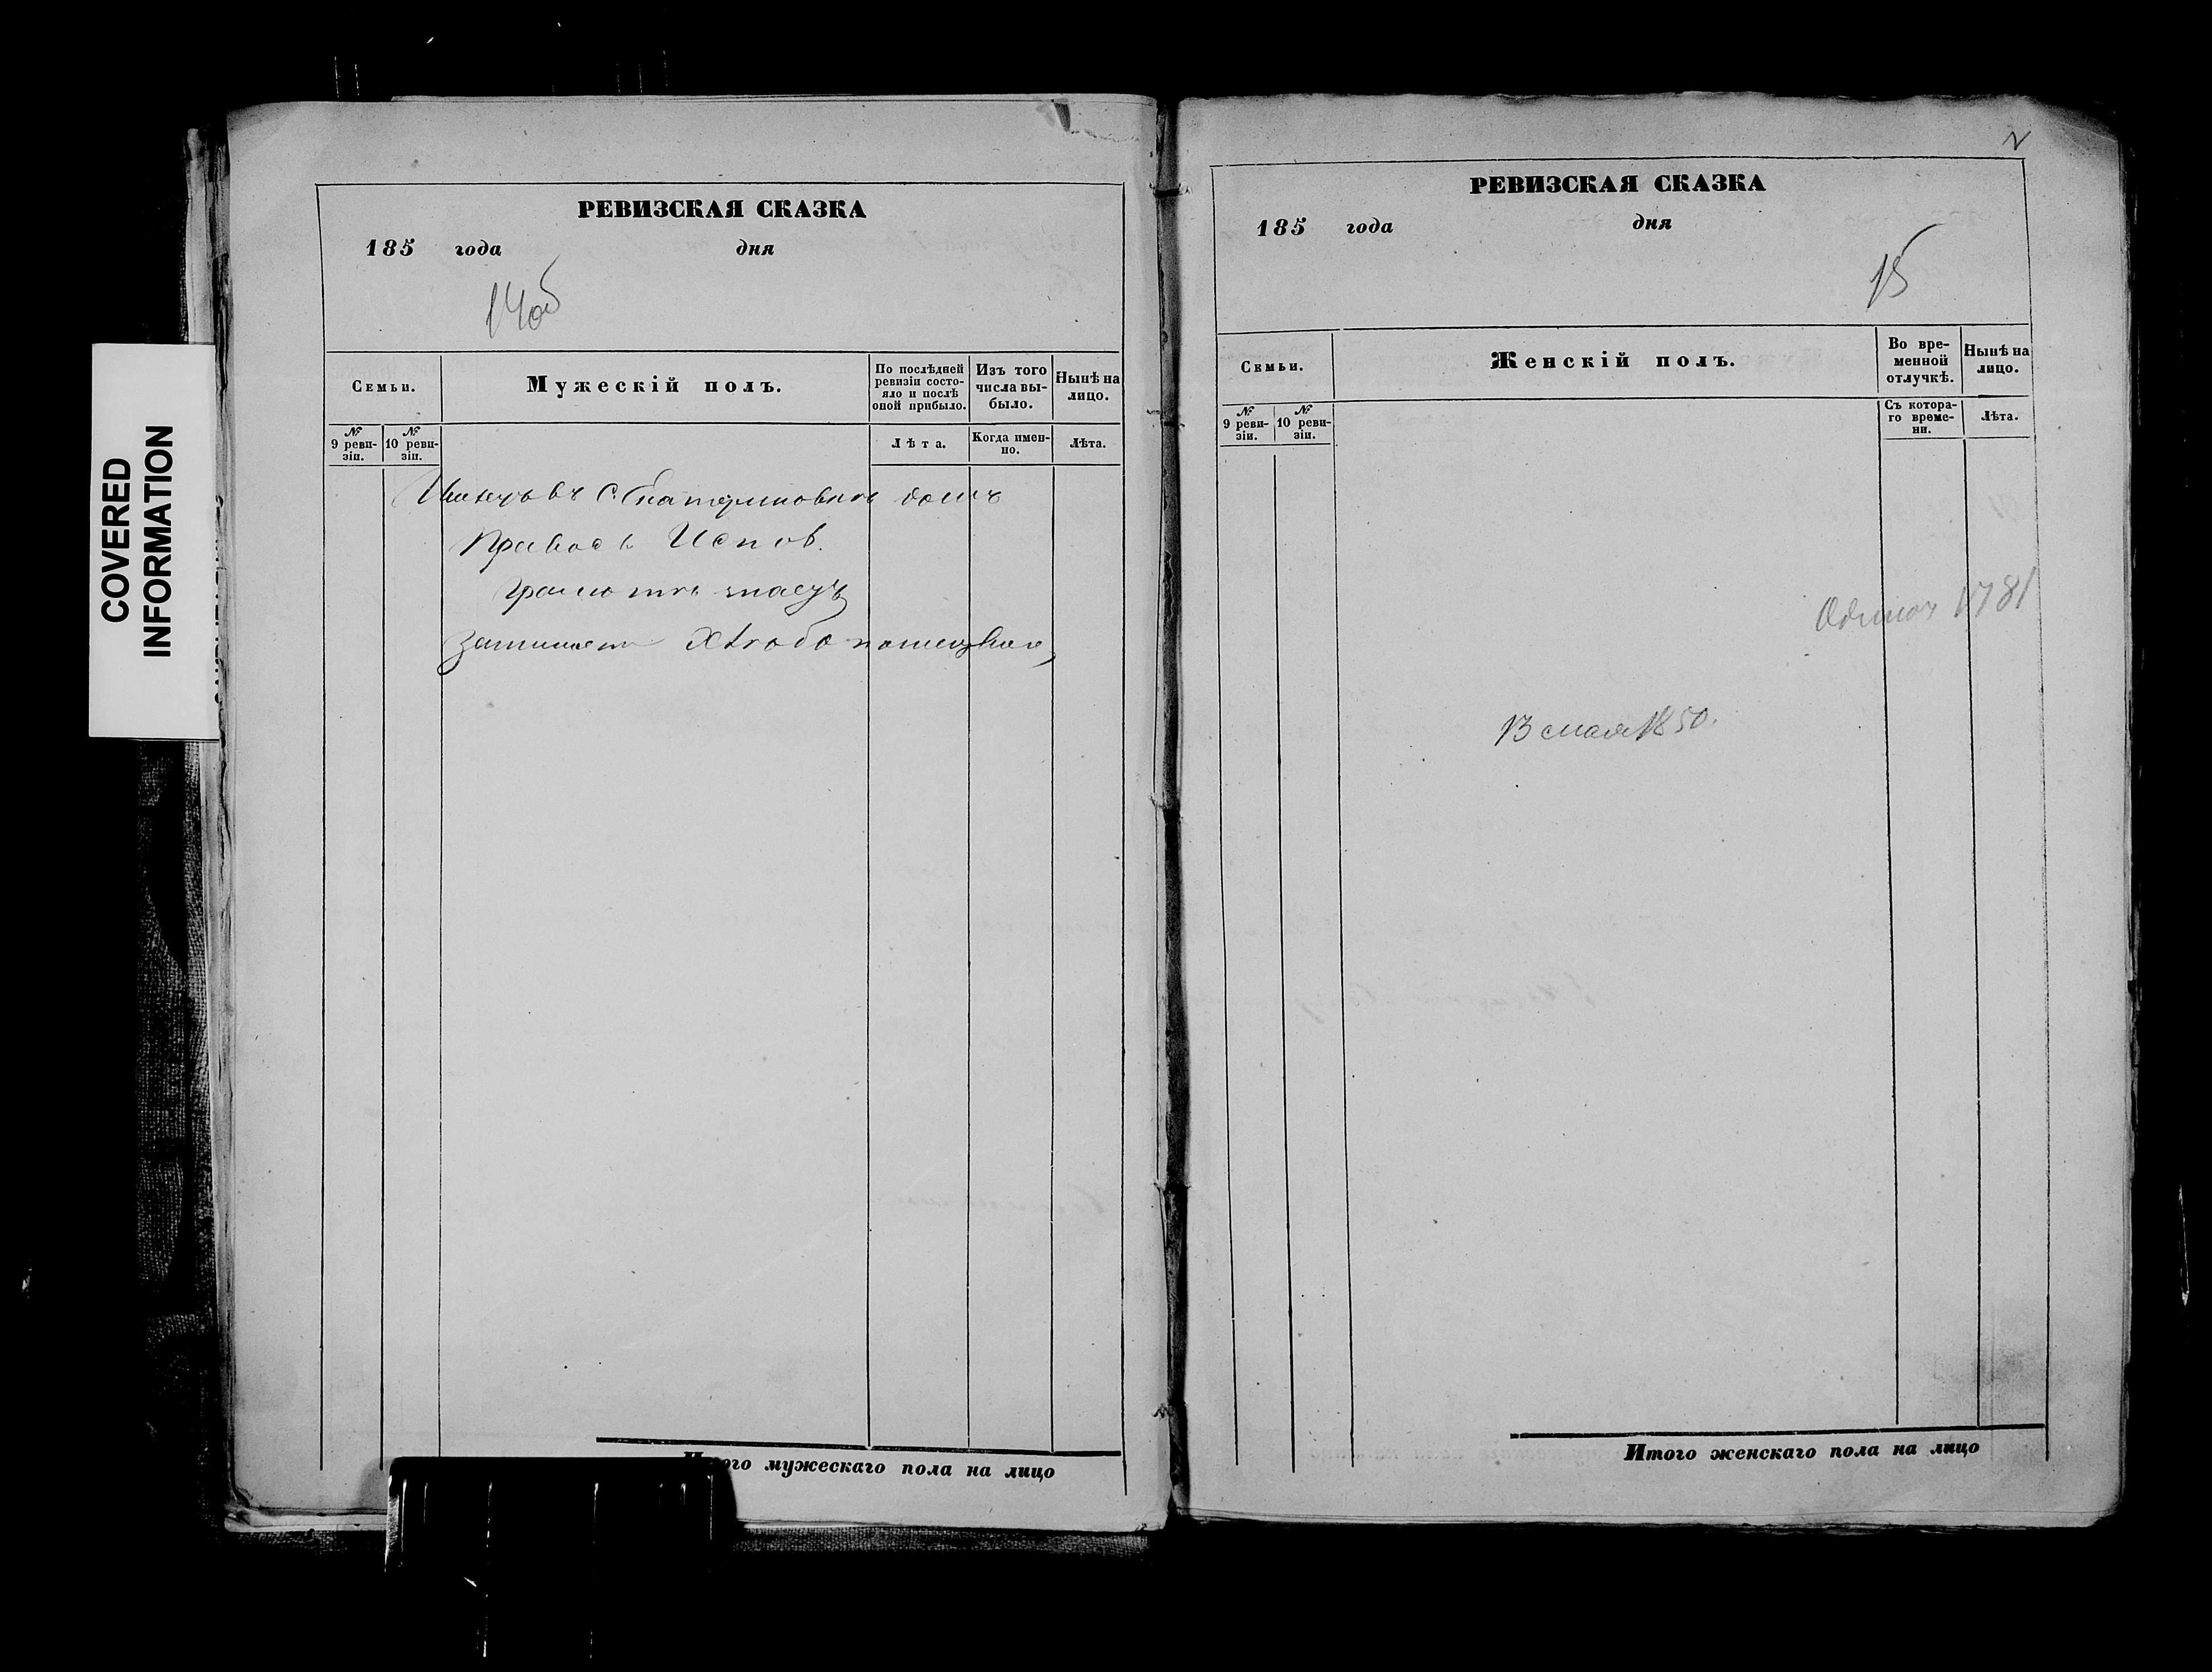 COVERED
INFORMATION
РЕВИЗСКАЯ СКАЗКА
185 года дня
14об
Семьи.
Мужескій полъ.
По послѣдней
ревизіи состо-
яло и послѣ
оной прибыло.
Изъ того
числа вы-
было.
Нынѣ на
лицо.
№
9 реви-
зіи.
№
10 реви-
зіи.
Лѣта.
Когда имен-
но.
Лѣта.
Имеетъ въ С. Екатериновкѣ домъ
Правос. Испов.
грамоте знаетъ
Хлѣбопашество
Итого мужескаго пола на лицо
2
РЕВИЗСКАЯ СКАЗКА
185 года дня
15
Семьи.
Женскій полъ.
Во вре-
менной
отлучкѣ.
Нынѣ на
лицо.
№
9 реви-
зіи.
№
10 реви-
зіи.
Съ котора-
го време-
ни.
Лѣта.
1781
13 мая 1850.
Итого женскаго пола на лицо